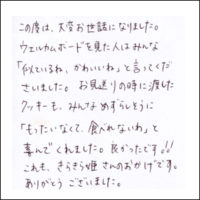 この度は、大変お世話になりました。
ウェルカムボードを見た人はみんな
「似ているね、かわいいね」と言ってくだ
さいました。お見送りの時に渡した
クッキーも、みんなめずらしそうに
「もったいなくて、食べれないわ」と
喜んでくれました。良かったです!!
これも、きらきら姫さんのおかげです。
ありがとうございました。